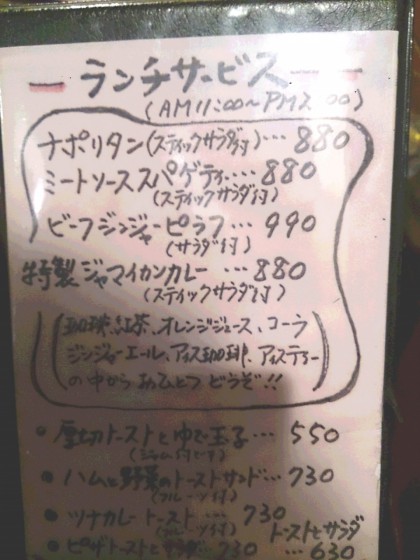 ランチサービス
(AM11:00~PM2:00)
ナポリタン(スティックサラダ付)… 880
ミートソーススパゲティ…. 880
(スティックサラダ付)
ビーフジンジャーピラフ… 990
(サラダ付)
特製ジャマイカンカレー … 880
(スティックサラダ付)
珈琲、紅茶、オレンジジュース、コーラ
ジンジャーエール、アイス珈琲、アイスティー
の中から おひとつ どうぞ!!
• 厚切トーストとゆで玉子… 550
• ハムと野菜のトーストサンド… 730
(フルーツ付)
• ツナカレートースト … 730
(フルーツ付)
トーストとサラダ
• ピザトーストとサラダ… 730 … 630